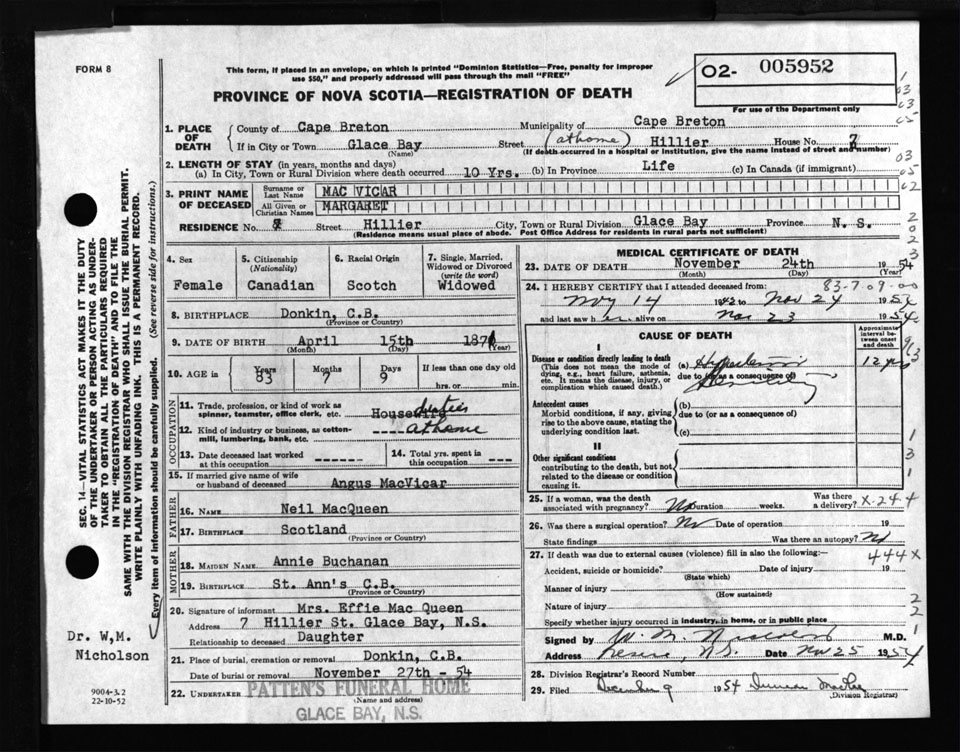 FORM 8
This form, if placed in an envelope, on which is printed "Dominion Statistics—Free, penalty for improper
use $50," and properly addressed will pass through the mail "FREE"
PROVINCE OF NOVA SCOTIA—REGISTRATION OF DEATH
O2- 005952
For use of the Department only
1. PLACE OF DEATH
County of Cape Breton Municipality of Cape Breton
If in City or Town Glace Bay Street (at home) Hillier House No. 7
(Name) (If death occurred in a hospital or institution, give the name instead of street and number)
2. LENGTH OF STAY (in years, months and days)
(a) In City, Town or Rural Division where death occurred 10 Yrs. (b) In Province Life (c) In Canada (if immigrant)
3. PRINT NAME OF DECEASED
Surname or Last Name MAC VICAR
All Given or Christian Names MARGARET
RESIDENCE No. Street Hillier City, Town or Rural Division Glace Bay Province N. S.
(Residence means usual place of abode. Post Office Address for residents in rural parts not sufficient)
4. Sex
Female
5. Citizenship
(Nationality)
Canadian
6. Racial Origin
Scotch
7. Single, Married, Widowed or Divorced
(write the word)
Widowed
8. BIRTHPLACE Donkin, C.B.
(Province or Country)
9. DATE OF BIRTH April 15th 1871
(Month) (Day) (Year)
10. AGE in Years Months Days If less than one day old
83 7 9 hrs. or min.
OCCUPATION
11. Trade, profession, or kind of work as
spinner, teamster, office clerk, etc. House duties
12. Kind of industry or business, as cotton-
mill, lumbering, bank, etc. at home
13. Date deceased last worked
at this occupation
14. Total yrs. spent in
this occupation
15. If married give name of wife
or husband of deceased Angus MacVicar
FATHER
16. NAME Neil MacQueen
17. BIRTHPLACE Scotland
(Province or Country)
MOTHER
18. MAIDEN NAME Annie Buchanan
19. BIRTHPLACE St. Ann's C.B.
(Province or Country)
20. Signature of informant Mrs. Effie Mac Queen
Address 7 Hillier St. Glace Bay, N.S.
Relationship to deceased Daughter
21. Place of burial, cremation or removal Donkin, C.B.
Date of burial or removal November 27th - 54
22. UNDERTAKER PATTEN'S FUNERAL HOME
(Name and address)
GLACE BAY, N.S.
MEDICAL CERTIFICATE OF DEATH
23. DATE OF DEATH November 24th 1954
(Month) (Day) (Year)
83-7-09-00
24. I HEREBY CERTIFY that I attended deceased from:
Nov 14 1942 to Nov 24 1954
and last saw her alive on Nov 23 1954
CAUSE OF DEATH
Approximate interval between onset and death
I
Disease or condition directly leading to death
(This does not mean the mode of
dying, e.g., heart failure, asthenia,
etc. It means the disease, injury, or
complication which caused death.)
(a) 12 yrs
due to (or as a consequence of)
Antecedent causes
Morbid conditions, if any, giving
rise to the above cause, stating the
underlying condition last.
(b)
due to (or as a consequence of)
(c)
II
Other significant conditions
contributing to the death, but not
related to the disease or condition
causing it.
25. If a woman, was the death
associated with pregnancy? No Duration weeks. Was there a delivery? X-244
26. Was there a surgical operation? No Date of operation 19
State findings Was there an autopsy? No
27. If death was due to external causes (violence) fill in also the following:— 444X
Accident, suicide or homicide? Date of injury 19
(State which)
Manner of injury
(How sustained)
Nature of injury
Specify whether injury occurred in industry, in home, or in public place
Signed by W. M. M.D.
Address N.S. Date Nov 25 1954
28. Division Registrar's Record Number
29. Filed December 9 1954 Duncan
(Division Registrar)
SEC. 14—VITAL STATISTICS ACT MAKES IT THE DUTY
OF THE UNDERTAKER OR PERSON ACTING AS UNDER-
TAKER TO OBTAIN ALL THE PARTICULARS REQUIRED
IN THE "REGISTRATION OF DEATH" AND TO FILE THE
SAME WITH THE DIVISION REGISTRAR WHO SHALL ISSUE THE BURIAL PERMIT.
WRITE PLAINLY WITH UNFADING INK. THIS IS A PERMANENT RECORD.
Every item of information should be carefully supplied. (See reverse side for instructions.)
Dr. W.M.
Nicholson
9004-3.2
22-10-52